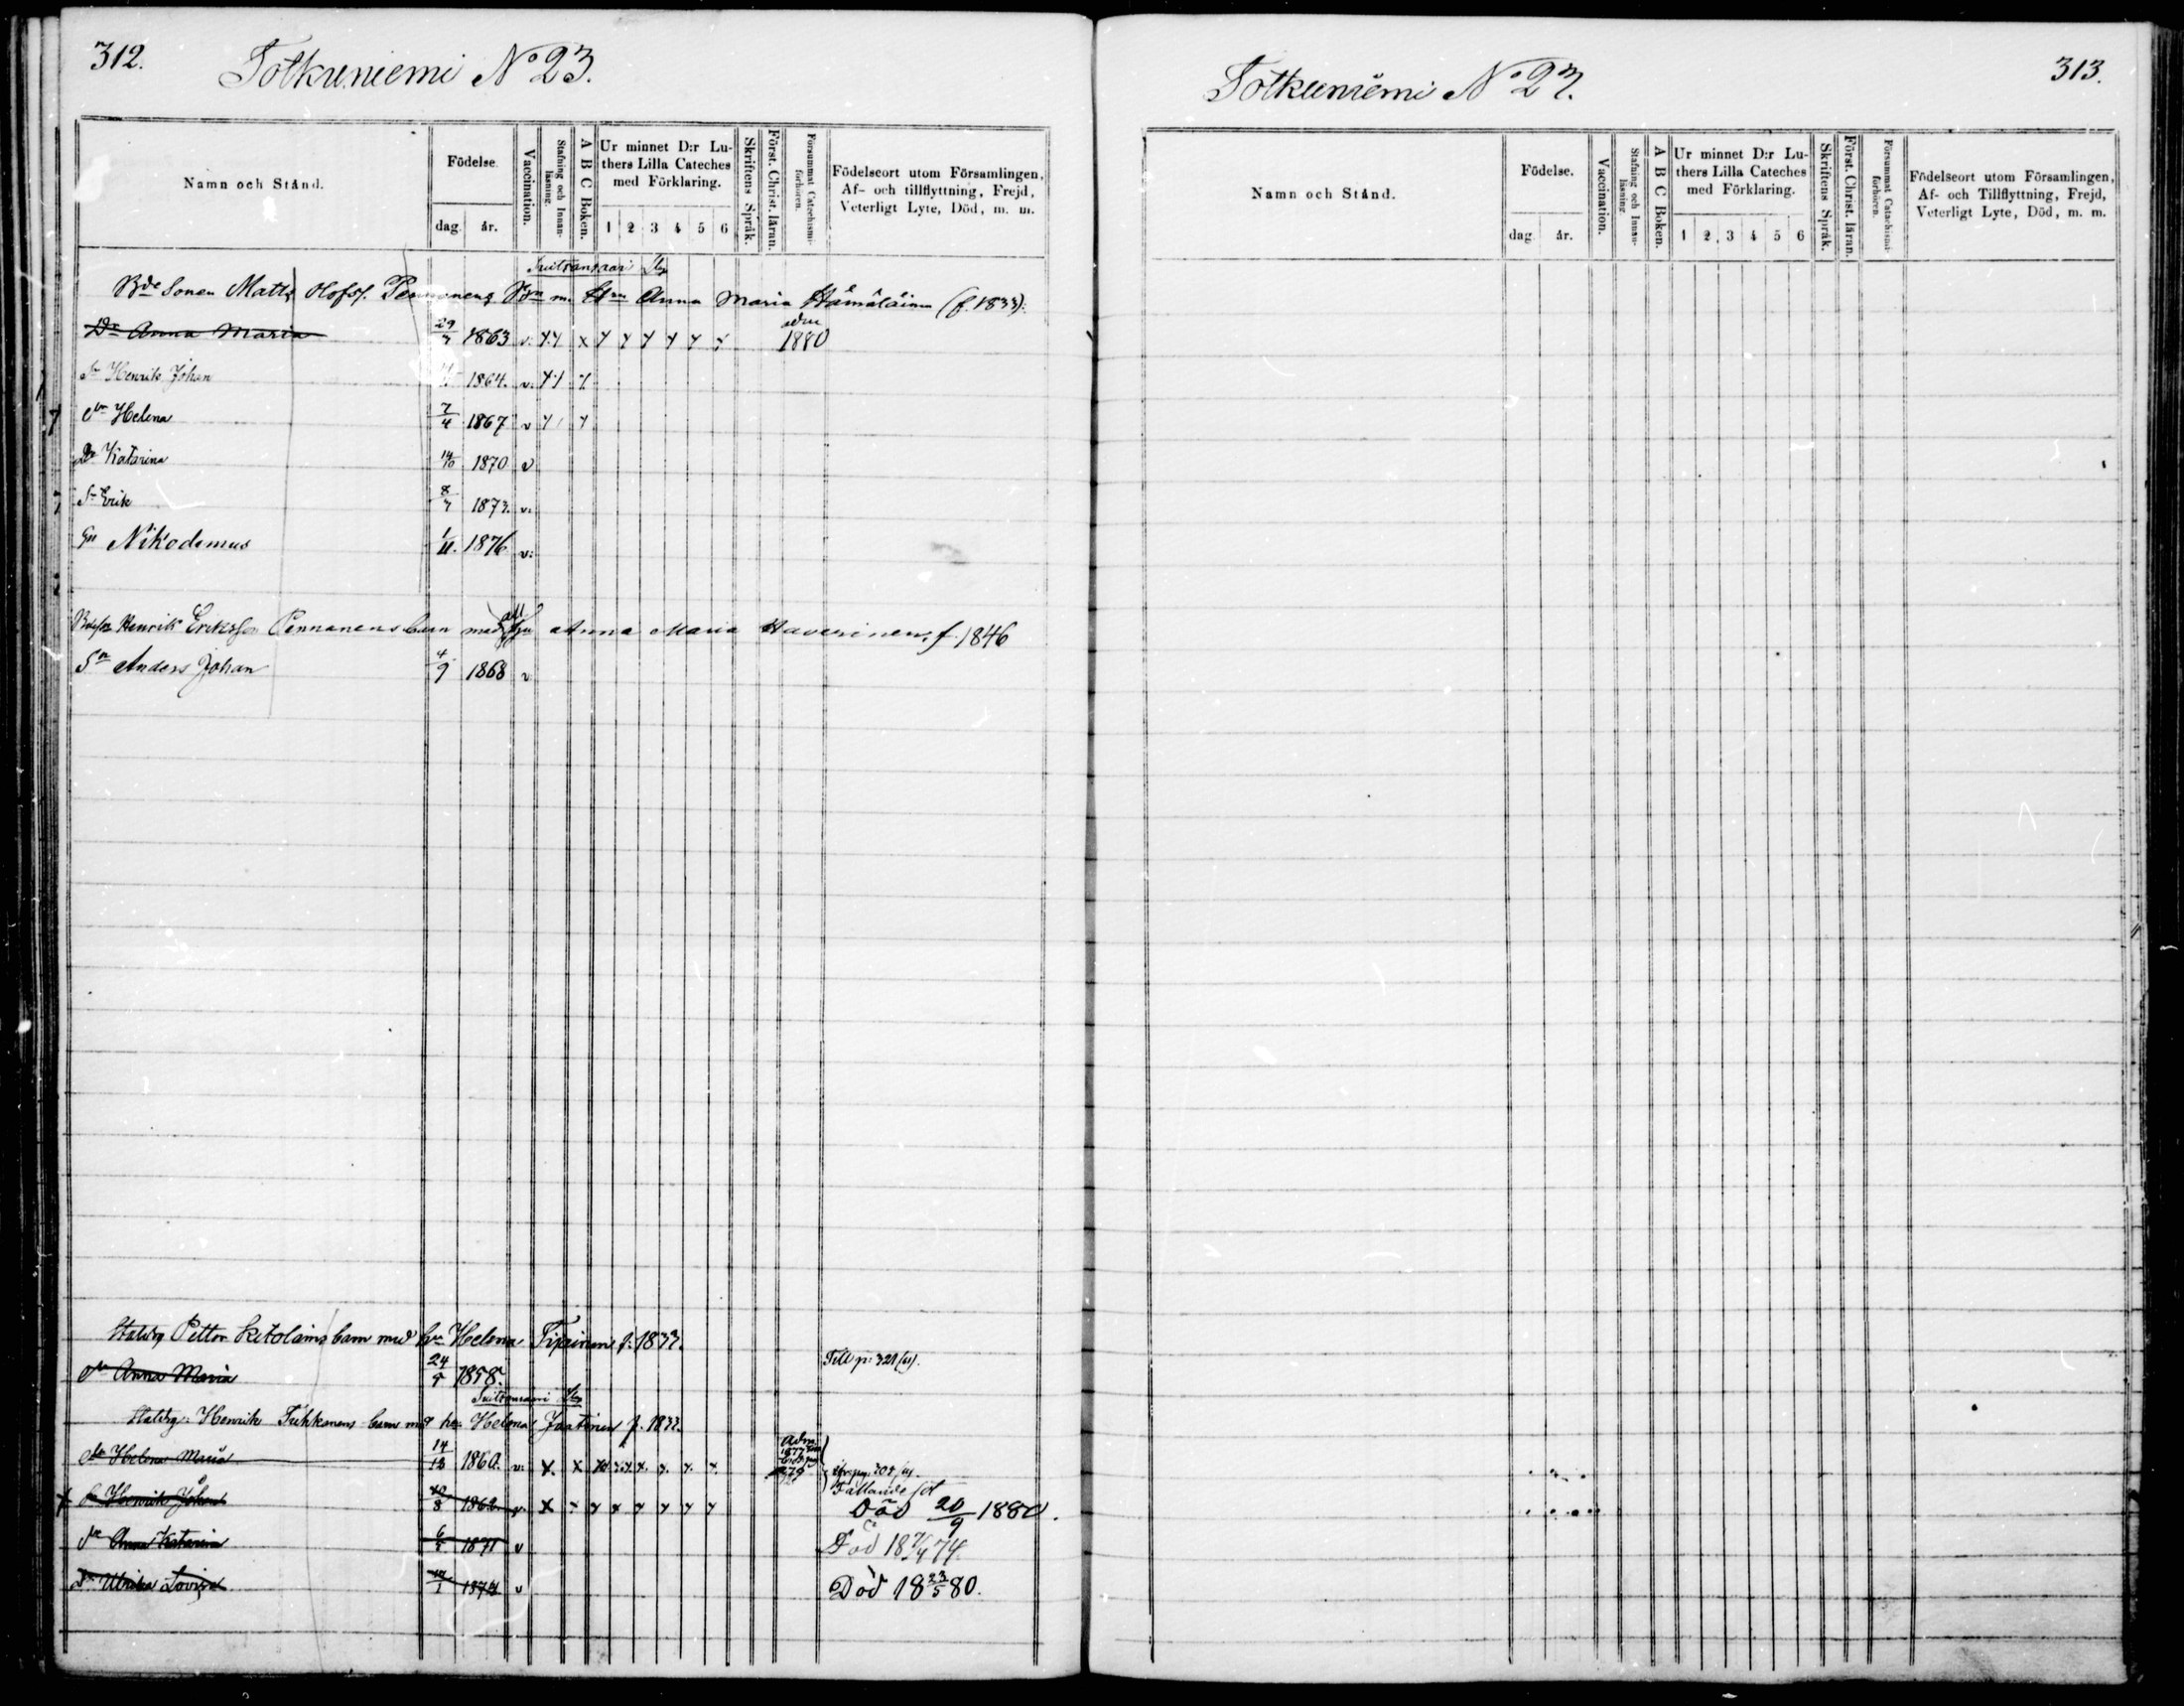 312.
Totkuniemi No 23.
Namn och Stånd.
Födelse.
dag.
år.
Vaccination.
Stafning och Innan-läsning.
A B C Boken.
Ur minnet D:r Lu-
thers Lilla Cateches
med Förklaring.
1 2 3 4 5 6
Skriftens Språk.
Först. Christ. läran.
Försummat Catechismi-förhören.
Födelseort utom Församlingen,
Af- och tillflyttning, Frejd,
Veterligt Lyte, Död, m. m.
Bde Sonen Matts Olofss. Pennanens Bn m. Hn Anna Maria Hämäläinen (f. 1833).
Dr Anna Maria 29/7 1863 v. adm 1880
Sn Henrik Johan 1864. v.
Dr Helena 7/4 1867 v
Dr Katarina 14/10 1870 v
Sn Erik 8/7 1873. v.
Sn Nikodemus 1/11. 1876 v.
Henrik Eriksson Pennanens barn med Anna Maria Haverinen, f. 1846
Sn Anders Johan 4/9 1868 v
Petter barn med hu Helena f. 1833.
Dr Anna Maria 24/5 1858. Till p: 321 (u).
Henrik Tuhkanens barn med hu Helena Jaatinen f. 1833.
Dr Helena Maria 14/12 1860. v. Adm.
Sn Henrik Johan 1862 v. Fallande sot
Död 20/9 1880.
Dr Anna Katarina 6/5 1871 v Död 18 7/4 74.
Dr Ulrika Loviza 1874 v Död 18 23/5 80.
313.
Totkuniemi No 23.
Namn och Stånd.
Födelse.
dag.
år.
Vaccination.
Stafning och Innan-läsning
A B C Boken.
Ur minnet D:r Lu-
thers Lilla Cateches
med Förklaring.
1 2 3 4 5 6
Skriftens Språk.
Först. Christ. läran.
Försummat Catachismi-förhören.
Födelseort utom Församlingen,
Af- och Tillflyttning, Frejd,
Veterligt Lyte, Död, m. m.